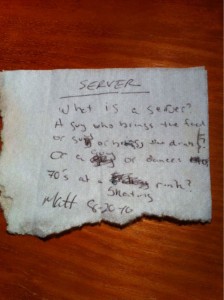 SERVER
What is a server?
A guy who brings the food
or guy or brings the drinks?
Or a guy or dances
70's at rink?
Skating
Matt